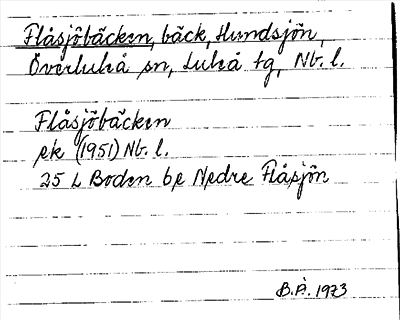 Flåsjöbäcken, bäck, Hundsjön,
Överluleå sn, Luleå tg, Nb. l.
Flåsjöbäcken
ek (1951) Nb. l.
25 L Boden be Nedre Flåsjön
B.Å. 1973